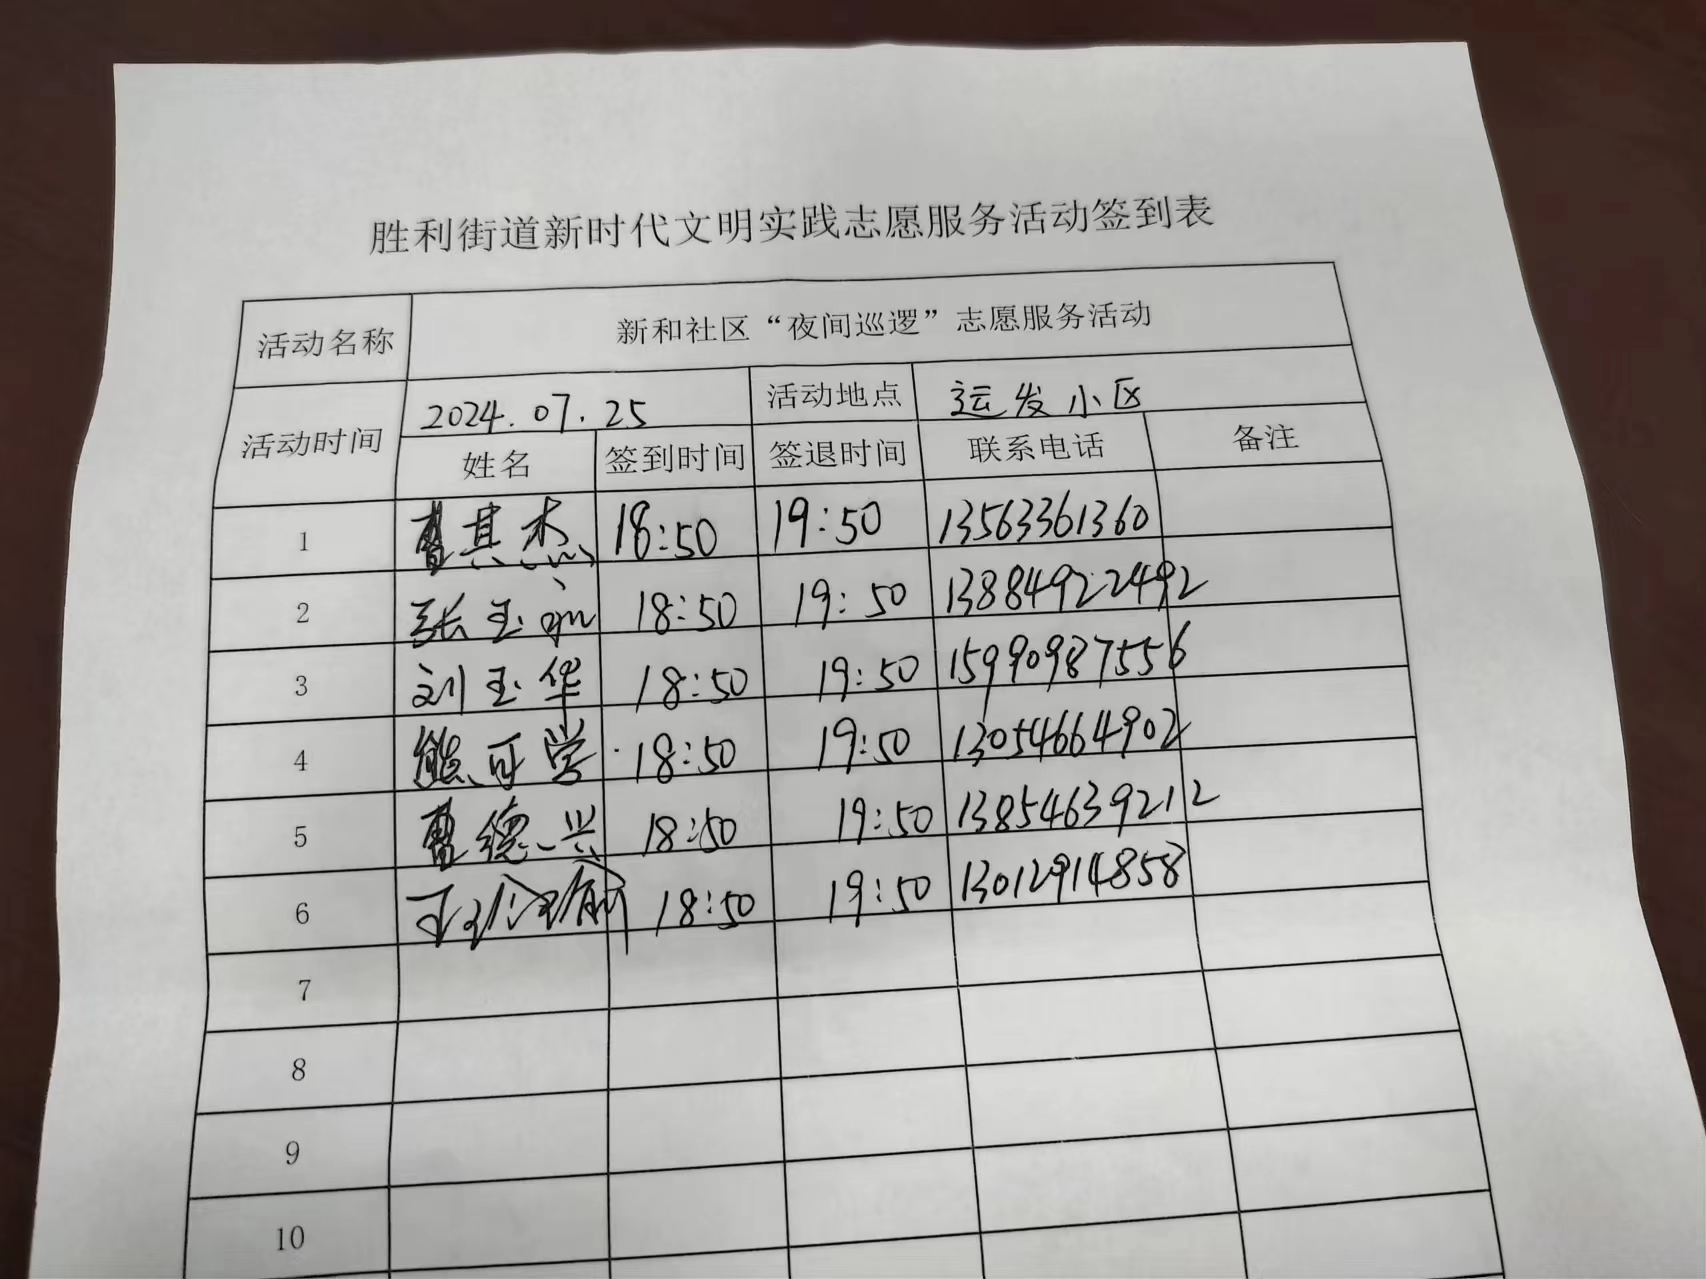 胜利街道新时代文明实践志愿服务活动签到表
活动名称 新和社区“夜间巡逻”志愿服务活动
活动时间 2024.07.25 活动地点 运发小区
姓名 签到时间 签退时间 联系电话 备注
1 曹其杰 18:50 19:50 13563361360
2 张玉 18:50 19:50 13884922492
3 刘玉华 18:50 19:50 15990987556
4 熊可学 18:50 19:50 13054664902
5 曹德兴 18:50 19:50 13854639212
6 18:50 19:50 13012914858
7
8
9
10